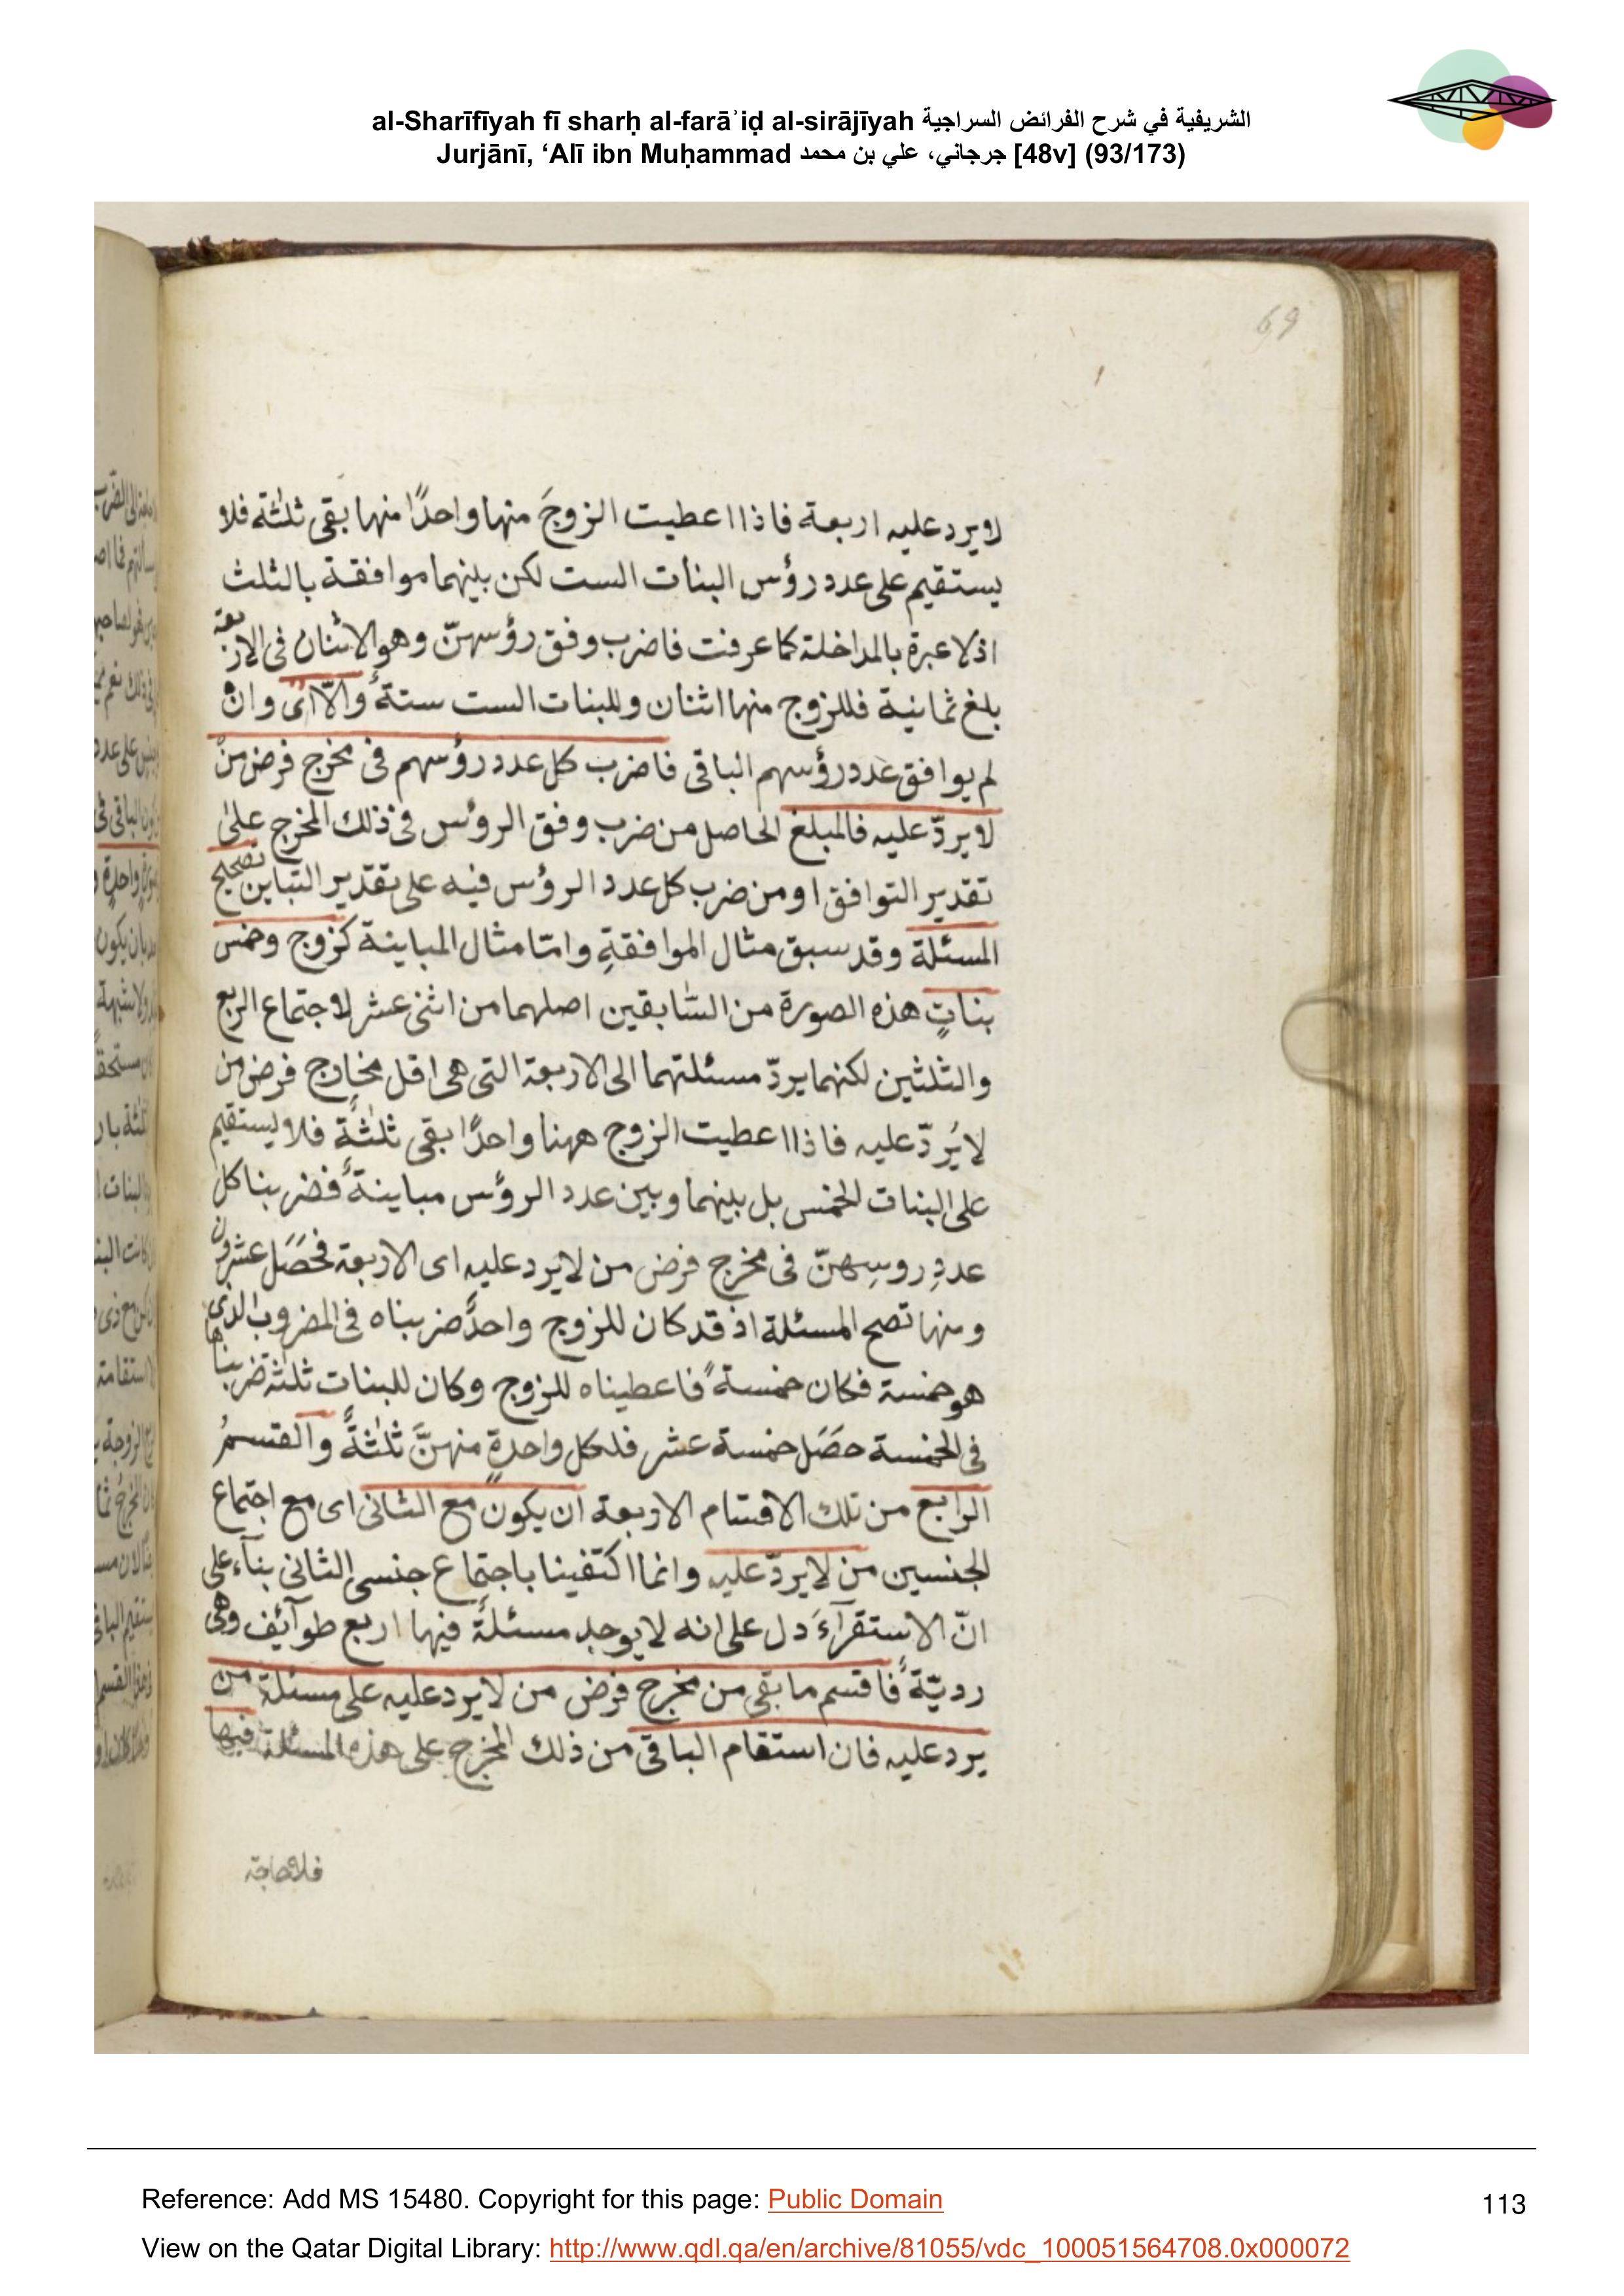 al-Sharīfīyah fī sharḥ al-farāʾiḍ al-sirājīyah الشريفية في شرح الفرائض السراجية
Jurjānī, ‘Alī ibn Muḥammad جرجاني، علي بن محمد [48v] (93/173)
69
لا يرد عليه اربعة فاذا اعطيت الزوجَ منها واحدًا منها بقى ثلثة فلا
يستقيم على عدد رؤس البنات الست لكن بينهما موافقة بالثلث
اذ لا عبرة بالمداخلة كما عرفت فاضرب وفق رؤسهنّ وهو الاثنان فى الاربعة
بلغ ثمانية فللزوج منها اثنان وللبنات الست ستة والّا اى وان
لم يوافق عدد رؤسهم الباقى فاضرب كل عدد رؤسهم فى مخرج فرض من
لا يردّ عليه فالمبلغ الحاصل من ضرب وفق الرؤس فى ذلك المخرج على
تقدير التوافق او من ضرب كل عدد الرؤس فيه على تقدير التباين تصحيح
المسئلة وقد سبق مثال الموافقةِ وامّا مثال المباينة كزوج وخمس
بناتٍ هذه الصورة من السّابقين اصلهما من اثنى عشر لاجتماع الربع
والثلثين لكنهما يردّ مسئلتهما الى الاربعة التى هى اقل مخارج فرض من
لا يُردّ عليه فاذا اعطيت الزوج ههنا واحدًا بقى ثلثةٌ فلا يستقيم
على البنات الخمس بل بينهما وبين عدد الرؤس مباينةٌ فضربنا كل
عددِ روسِهنّ فى مخرج فرض من لا يرد عليه اى الاربعة فحَصَل عشرون
ومنها تصح المسئلة اذ قد كان للزوج واحدٌ ضربناه فى المضروب الذى
هو خمسة فكان خمسةً فاعطيناه للزوج وكان للبنات ثلثة ضربناها
فى الخمسة حصَل خمسة عشر فلكل واحدةٍ منهنَّ ثلثةٌ والقسمُ
الرابع من تلك الاقسام الاربعة ان يكون مع الثانى اى مع اجتماع
الجنسين من لا يردّ عليه وانما اكتفينا باجتماع جنسى الثانى بنآء على
انّ الاستقرآءَ دل على انه لا يوجد مسئلةٌ فيها اربع طوآئف وهى
رديّةٌ فاقسم ما بقى من مخرج فرض من لا يرد عليه على مسئلة من
يرد عليه فان استقام الباقى من ذلك المخرج على هذه المسئلة فبها
فلا حاجة
Reference: Add MS 15480. Copyright for this page: Public Domain
113
View on the Qatar Digital Library: http://www.qdl.qa/en/archive/81055/vdc_100051564708.0x000072